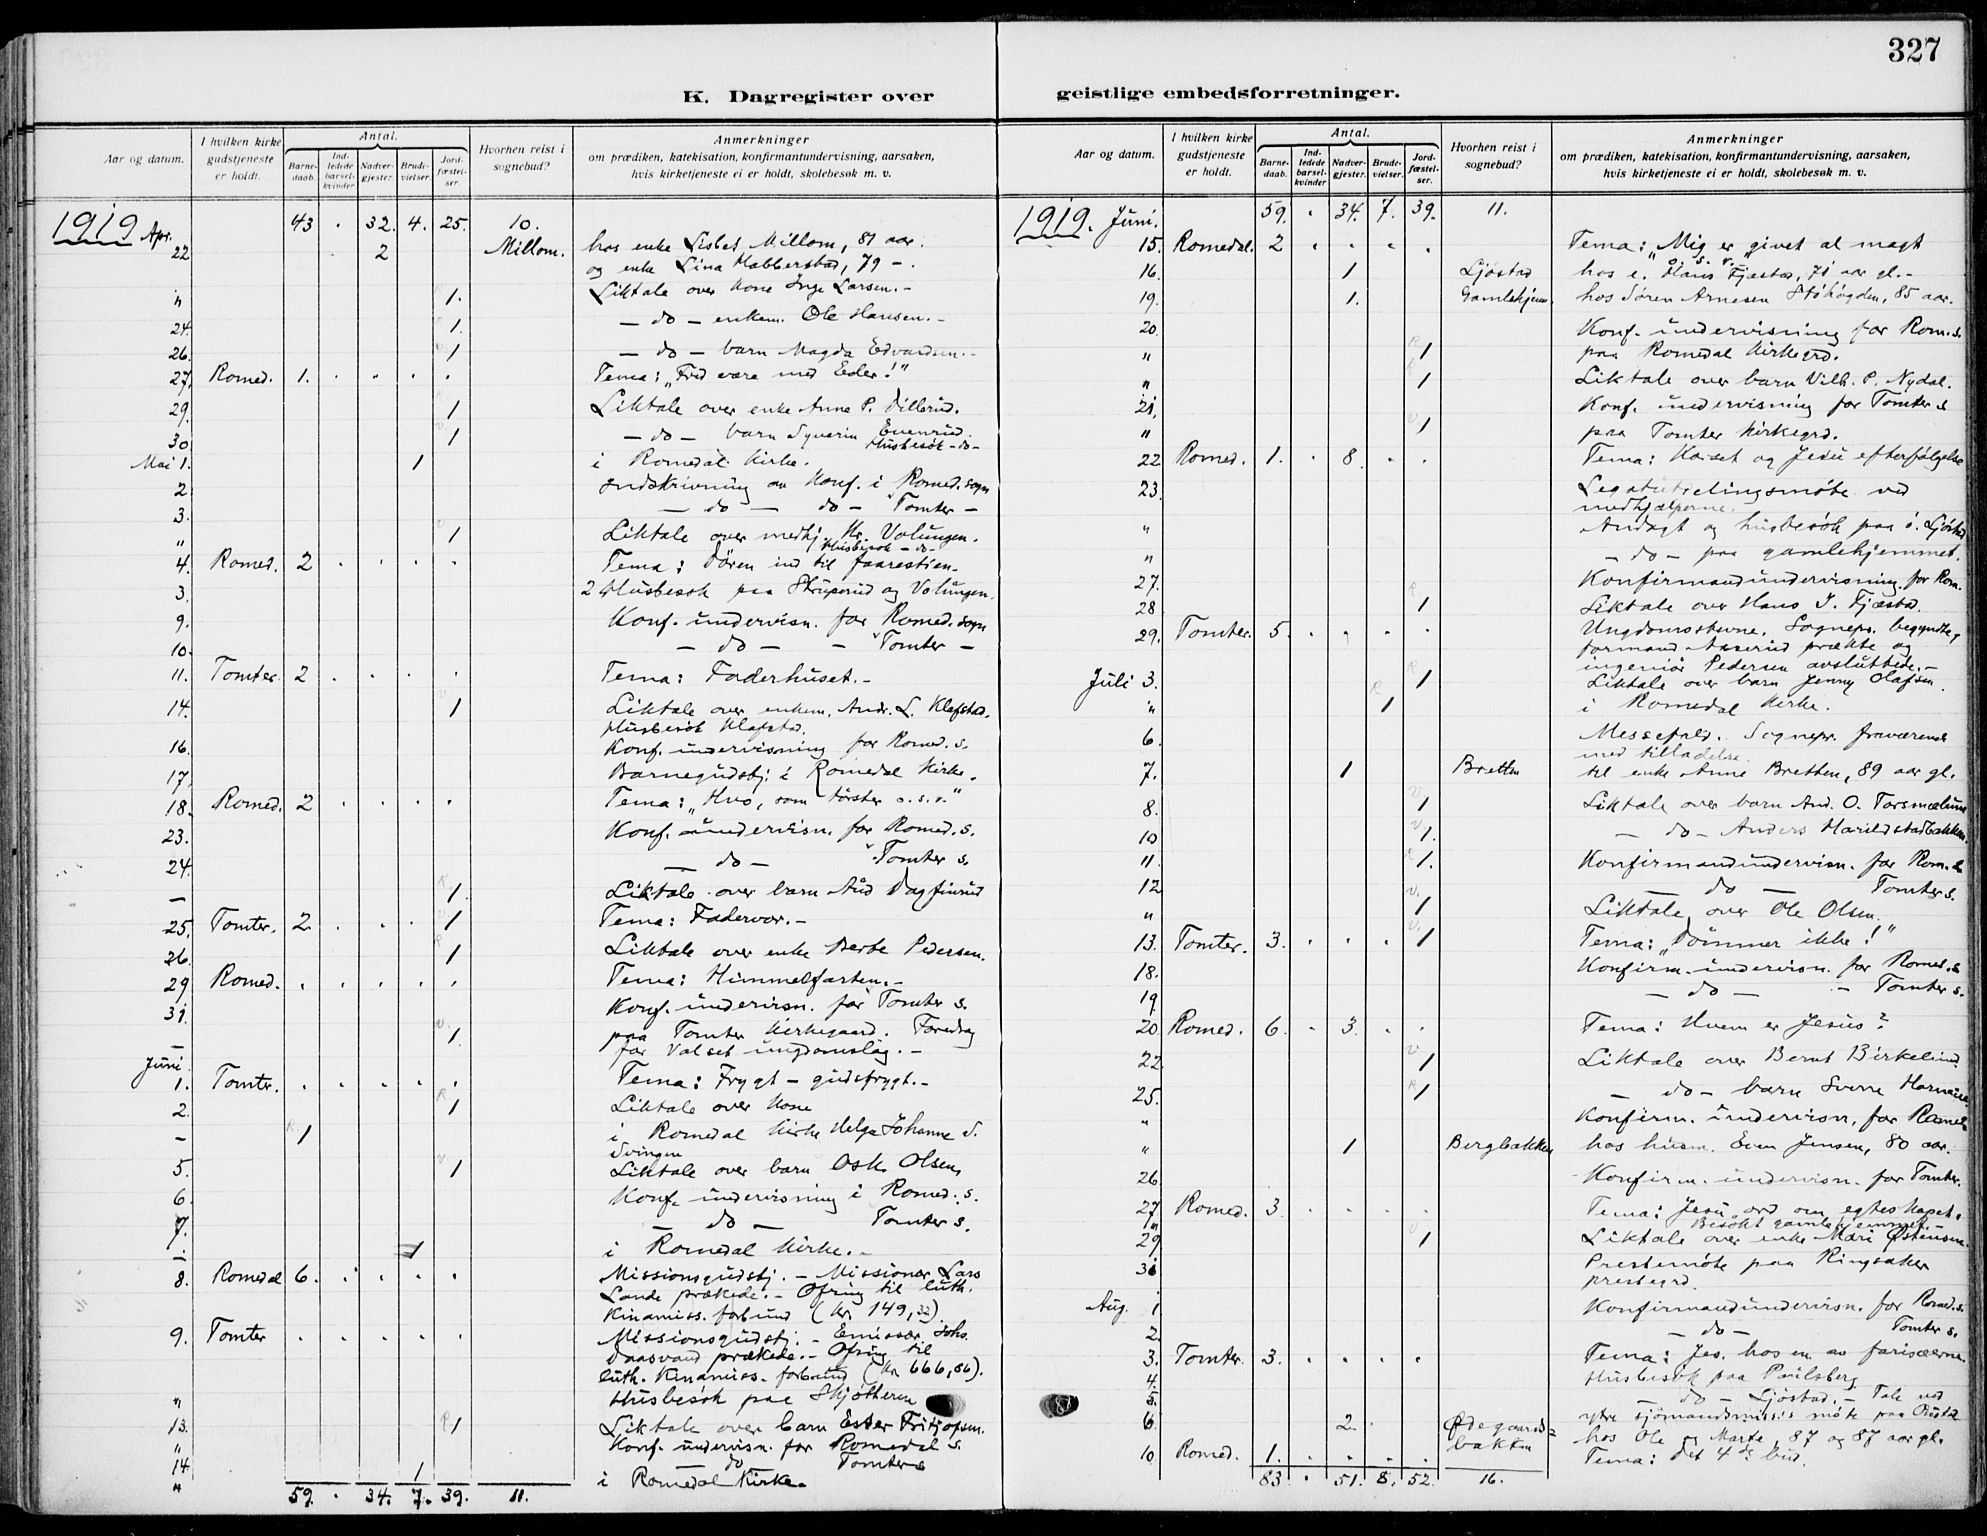 327
K. Dagregister over geistlige embedsforretninger.
Aar og datum. I hvilken kirke gudstjeneste er holdt. Antal. Barne-daab. Ind-ledede barsel-kvinder Nadver-gjester. Brude-vielser. Jord-fæstel-ser. Hvorhen reist i sognebud? Anmerkninger om prædiken, katekisation, konfirmantundervisning, aarsaken, hvis kirketjeneste ei er holdt, skolebesøk m. v.
1919 Apr. 43 . 32. 4. 25. 10.
22 2 Millom. hos enke Lisbet Millom, 81 aar.
og enke Lina Habberstad, 79 -.
" 1. Liktale over kone Inge Larsen.-
24 1. - do - enkem. Ole Hansen.-
26. 1 - do - barn Magda Edvardsen.-
27. Romed. 1. . . . . Tema: "Fred være med Eder!"
29. 1 Liktale over enke Anne P. Dillerud.
30 1 - do - barn Syverin Evenrud.
Husbesök -do-
Mai 1. 1 i Romedal Kirke.
2 Indskrivning av Konf. i Romed. sogn
3. - do - do - Tomter -
" 1 Liktale over medhj. Kr. Volungen.
Husbesök - do-
4. Romed. 2 . . . . Tema: Dören ind til faarestien.
3. 2 Husbesök paa Struperud og Volungen.
9. Konf. undervisn. for Romed. sogn
10. - do - - Tomter -
11. Tomter. 2 . . . . Tema: Faderhuset.-
14. 1 Liktale over enkem. Andr. L. Klefstad.
Husbesök Klefstad.
16. Konf. undervisning for Romed. s.
17. Barnegudstj. i Romedal Kirke.
18. Romed. 2 . . . . Tema: "Hvo, som törster o.s.v."
23. Konf. undervisn. for Romed. s.
24. - do - " Tomter s.
- 1. Liktale over barn Aud Dagfinrud
25. Tomter. 2 . . . 1 Tema: Fadervor.-
26. 1 Liktale over enke Berte Pedersen.
29 Romed. . . . . . Tema: Himmelfarten.-
31. Konf. undervisn. for Tomter s.
- 1. paa Tomter Kirkegaard. Foredrag
for Valset ungdomslag.-
Juni
1. Tomter. . . . . . Tema: Frygt - gudsfrygt.-
2. 1 Liktale over kone
- 1 i Romedal Kirke Helga Johanne S.
Svingen
5. 1 Liktale over barn Osk. Olsen,
6. Konf. undervisning i Romed. s.
7. - do - Tomter s.
- 1 i Romedal Kirke.-
8. Romedal 6. . . . . Missionsgudstj. - Missionær Lars
Lande prækede.- Ofring til luth.
Kinamiss. forbund (Kr. 149,32)
9. Tomter . . . . . Missionsgudstj. - Emissær Johs.
Daasvand prækede.- Ofring til
luth. Kinamiss. forbund (Kr. 666,86).
" Husbesök paa Skjötteren
13. 1 Liktale over barn Ester Fritjofsen.
" Konf. undervisn. for Romedal s.
14 - do - Tomter s
" 1 i Romedal Kirke.
59. . 34. 7. 39. 11.
Aar og datum. I hvilken kirke gudstjeneste er holdt. Antal. Barne-daab. Ind-ledede barsel-kvinder Nadver-gjester. Brude-vielser. Jord-fæstel-ser. Hvorhen reist i sognebud? Anmerkninger om prædiken, katekisation, konfirmantundervisning, aarsaken, hvis kirketjeneste ei er holdt, skolebesøk m. v.
1919. Juni. 59. . 34. 7. 39. 11.
15. Romedal. 2 . . . . Tema: "Mig er givet al magt
o. s. v."
16. 1 Ljöstad hos e. Hans Fjæstad, 71 aar gl.-
19. 1. Gamlehjem. hos Sören Arnesen Stöhögden, 85 aar.
20. Konf. undervisning for Rom. s.
" 1 paa Romedal Kirkegrd.
" 1 Liktale over barn Vilh. P. Nydal.
21. Konf. undervisning for Tomter s
" 1 paa Tomter Kirkegrd.
22 Romed. 1. . 8. . . Tema: Korset og Jesu efterfölgelse
23. Legatutdelingsmöte ved
medhjælperne.
" Andagt og husbesök paa ö. Ljöstad
" - do - paa gamlehjemmet.
27. Konfirmandundervisning for Rom.
28 1 Liktale over Hans J. Fjæstad.
29. Tomter. 5. . . . . Ungdomsstevne. Sognepr. begyndte,
formand Aaserud prækte og
ingeniör Pedersen avsluttede.-
Juli 3. 1 Liktale over barn Jenny Olafsen.
" 1 i Romedal Kirke.
6. Messefald. Sognepr. fraværende
med tilladelse.
7. 1 Bretten til enke Anne Bretten, 89 aar gl.
8. 1 Liktale over barn And. O. Torsmælum
10 1. - do - Anders Harildstadbakken.
11. 1. Konfirmandundervisn. for Rom. s
12 - do - Tomter s.
" 1 Liktale over Ole Olsen.
13. Tomter. 3. . . . 1 Tema: "Dömmer ikke!"
18. Konfirm. undervisn. for Romed. s
19. - do - - Tomter s.
20. Romed. 6. . 3. . . Tema: Hvem er Jesus?
22. 1 Liktale over Bernt Birkelund.
25. 1 - do - barn Sverre
" Konfirm. undervisn. for Romed.
" 1 Bergbakken hos husm. Even Jensen, 80 aar.
26. Konfirm. undervisn. for Tomter.
27. Romed. 3. . . . . Tema: Jesu ord om egteskapet.
" Besökt gamlehjemmet.-
29. 1 Liktale over enke Mari Östensen.
31 Prestemöte paa Ringsaker
prestegrd.
Aug. 1 Konfirmandundervisn. for Romed. s.
2. - do - Tomter s.
3. Tomter. 3. . . . . Tema: Jes. hos en av farisæerne.
4. Husbesök paa Paulsberg
5. - do - Ljöstad.- Tale ved
ytre sjömandsmiss's möte paa
6. 2. Ödegaards=bakken hos Ole og Marte, 87 og 87 aar gl.
10 Romed. 1. . . . . Tema: Det 4de bud.
83. . 51. 8. 52. 16.